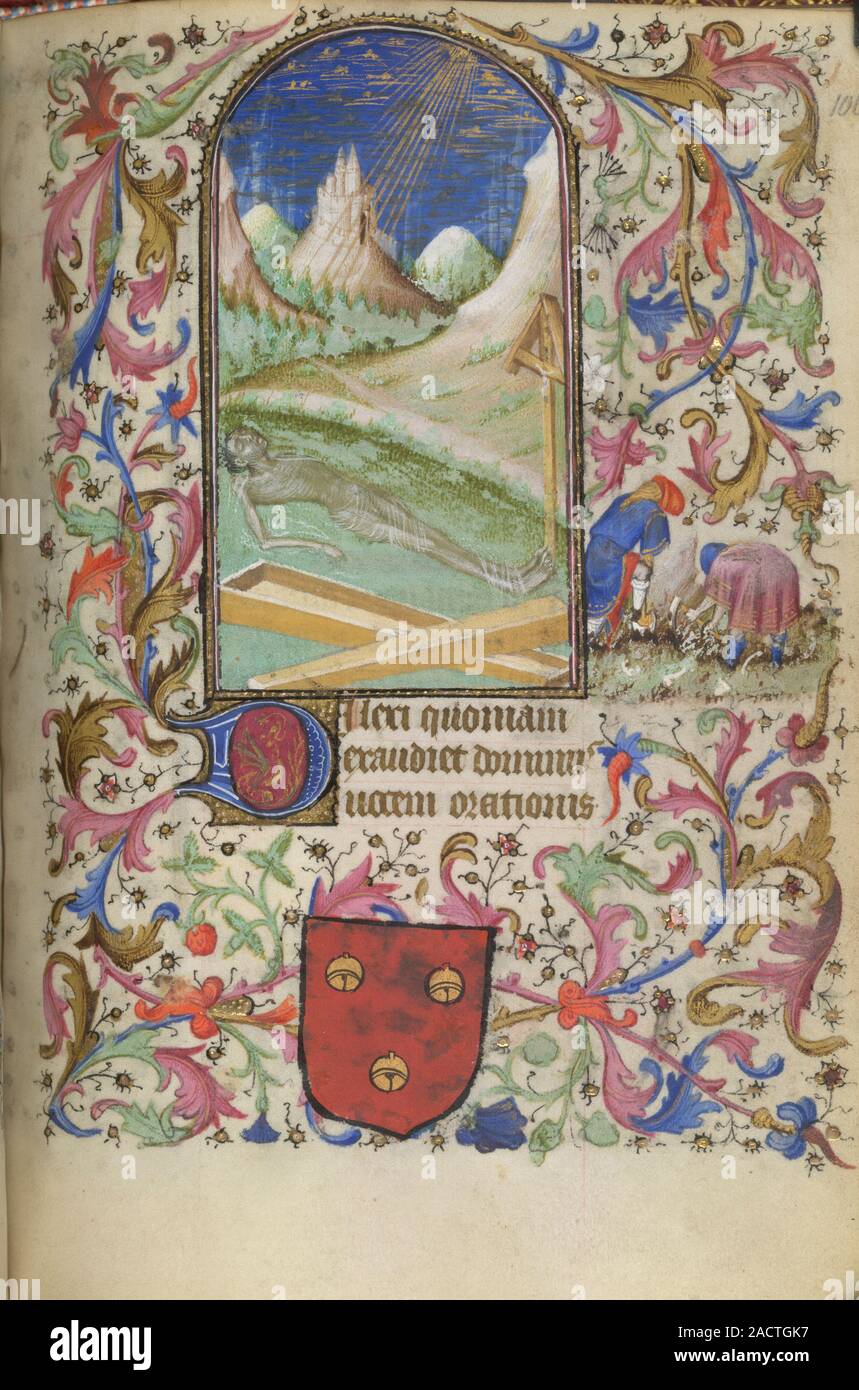 10
Dilexi quoniam
exaudiet dominus
vocem orationis
a
alamy
Image ID: 2ACTGK7
www.alamy.com